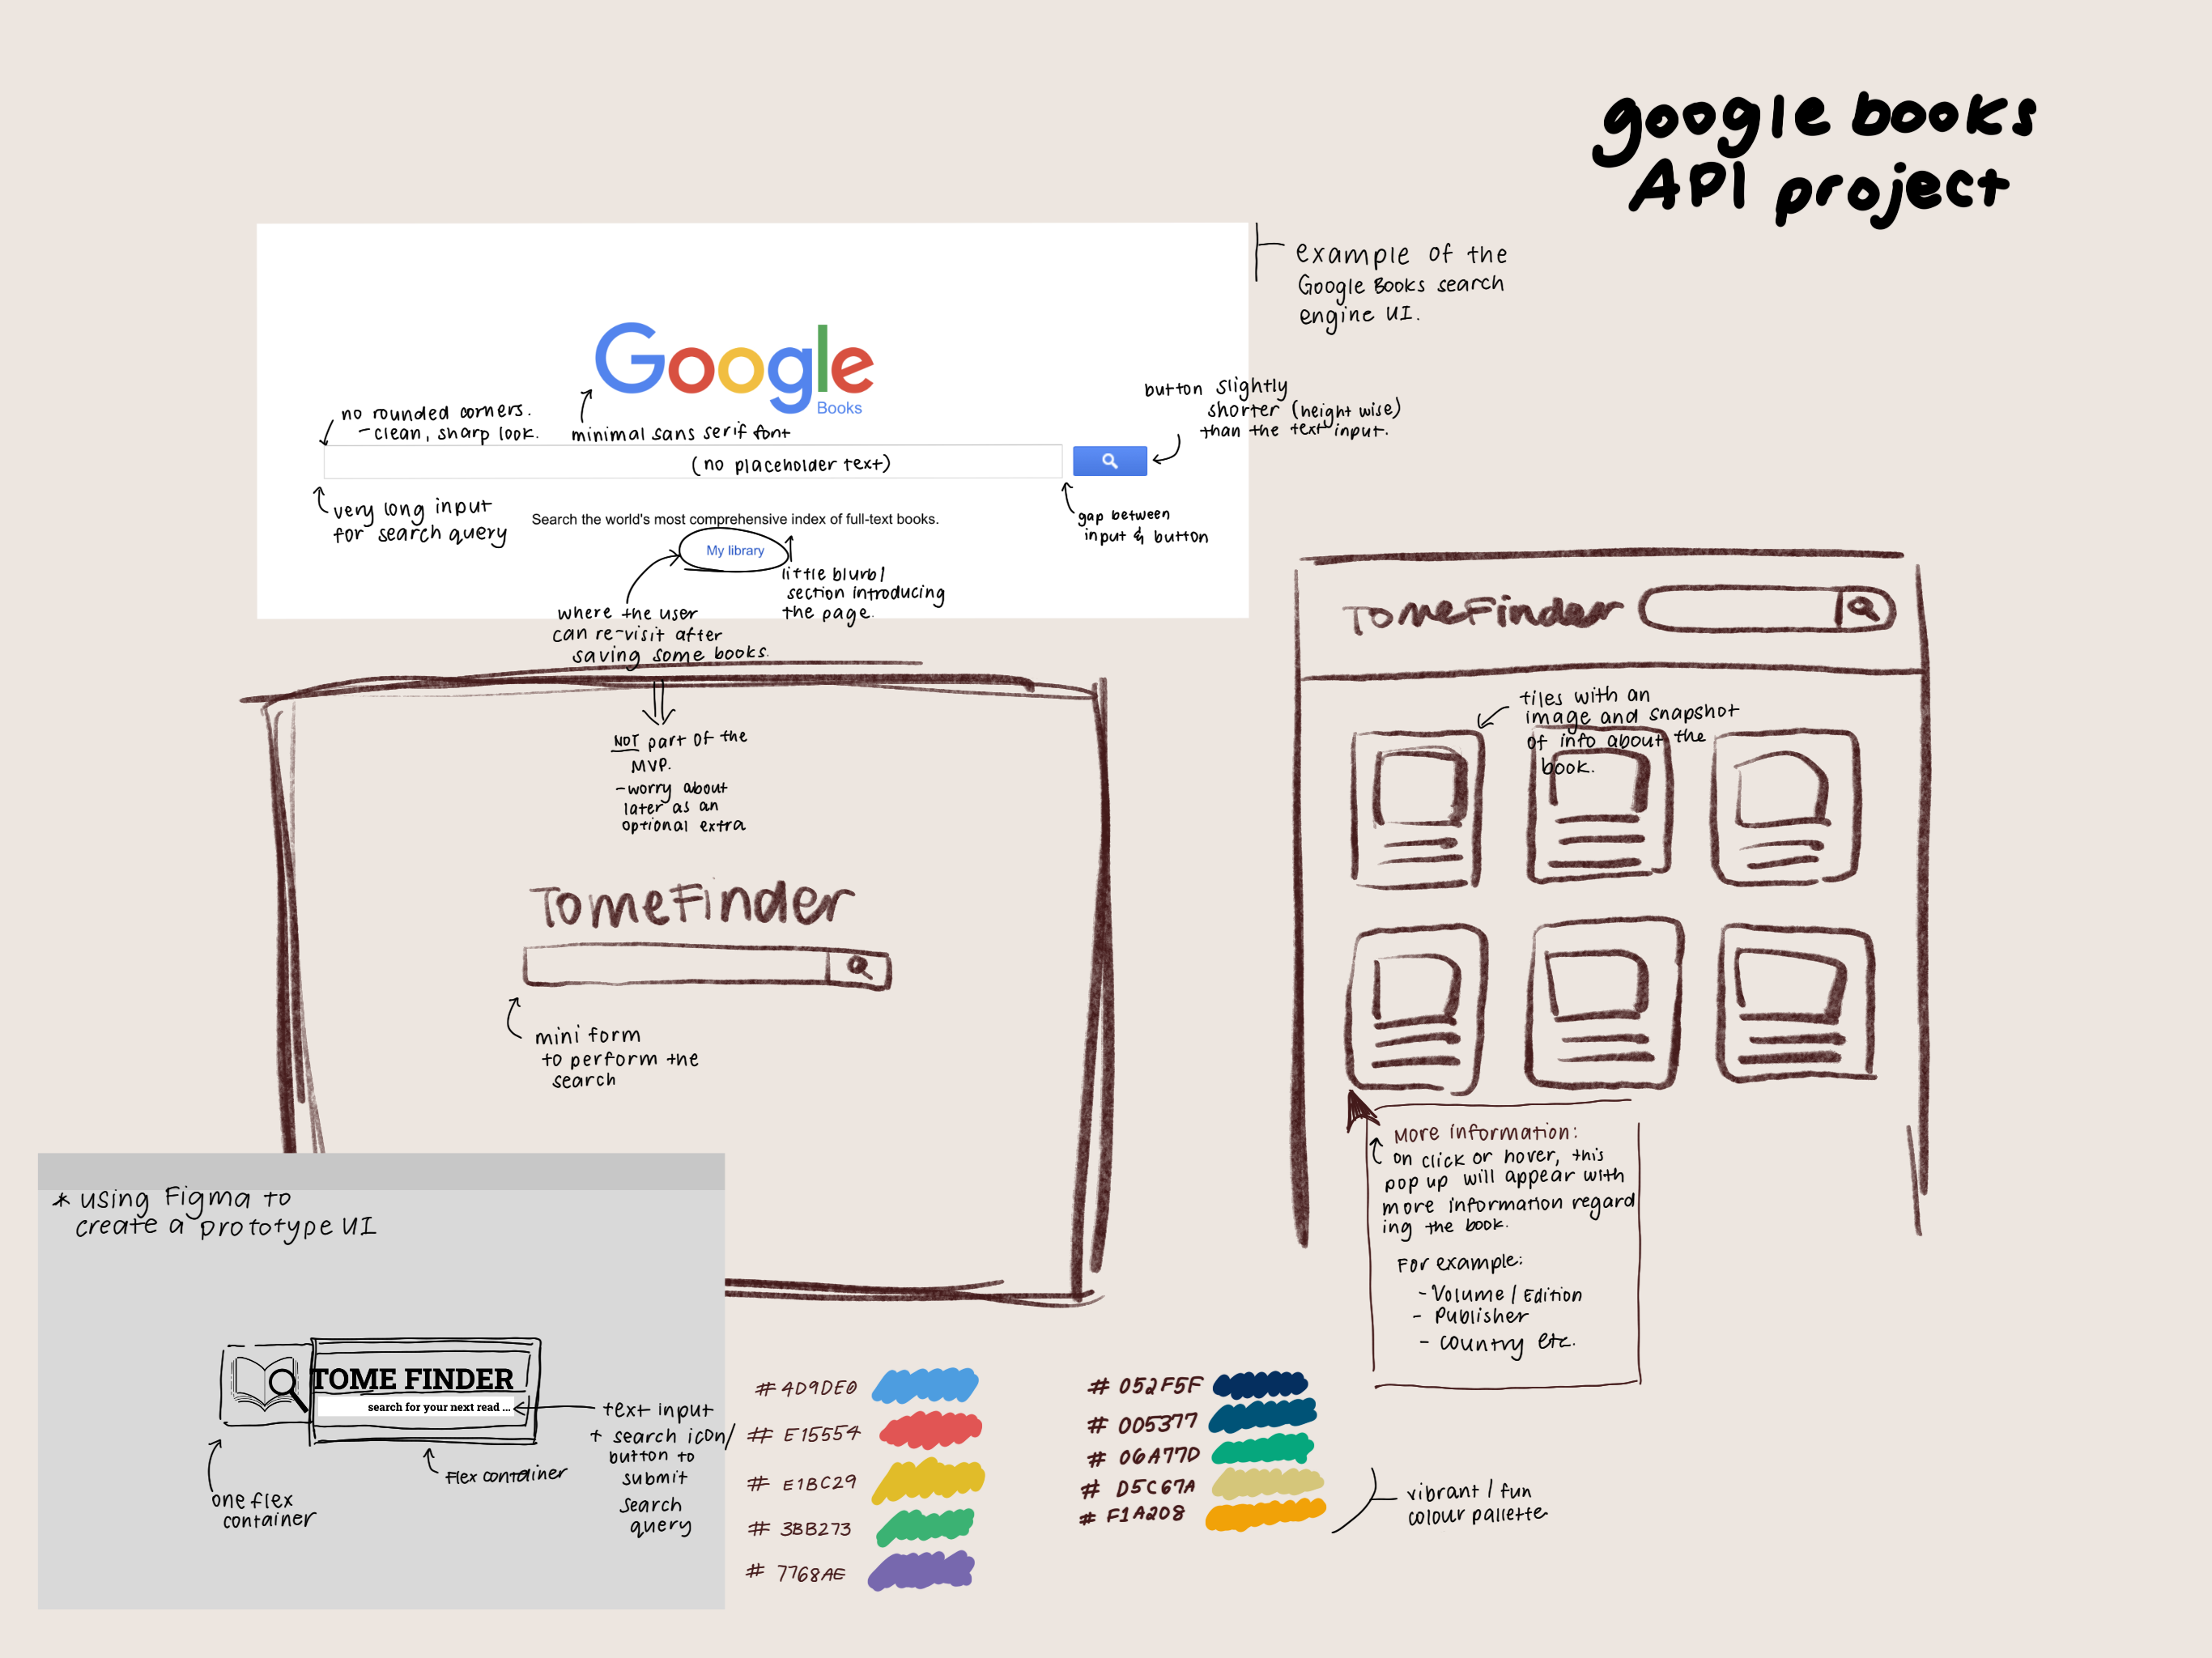 google books
API project
example of the
Google Books search
engine UI.
Google
Books
no rounded corners.
- clean, sharp look.
minimal sans serif font
button slightly
shorter (height wise)
than the text input.
(no placeholder text)
very long input
for search query
Search the world's most comprehensive index of full-text books.
My library
gap between
input & button
little blurb/
section introducing
the page.
where the user
can re-visit after
saving some books.
NOT part of the
MVP.
- worry about
later as an
optional extra
TomeFinder
mini form
to perform the
search
TomeFinder
tiles with an
image and snapshot
of info about the
book.
More information:
on click or hover, this
pop up will appear with
more information regard
ing the book.
For example:
- Volume / Edition
- Publisher
- country etc.
* using Figma to
create a prototype UI
TOME FINDER
search for your next read ...
text input
+ search icon/
button to
submit
search
query
flex container
one flex
container
# 4D9DE0
# E15554
# E1BC29
# 3BB273
# 7768AE
# 052F5F
# 005377
# 06A77D
# D5C67A
# F1A208
vibrant / fun
colour pallette